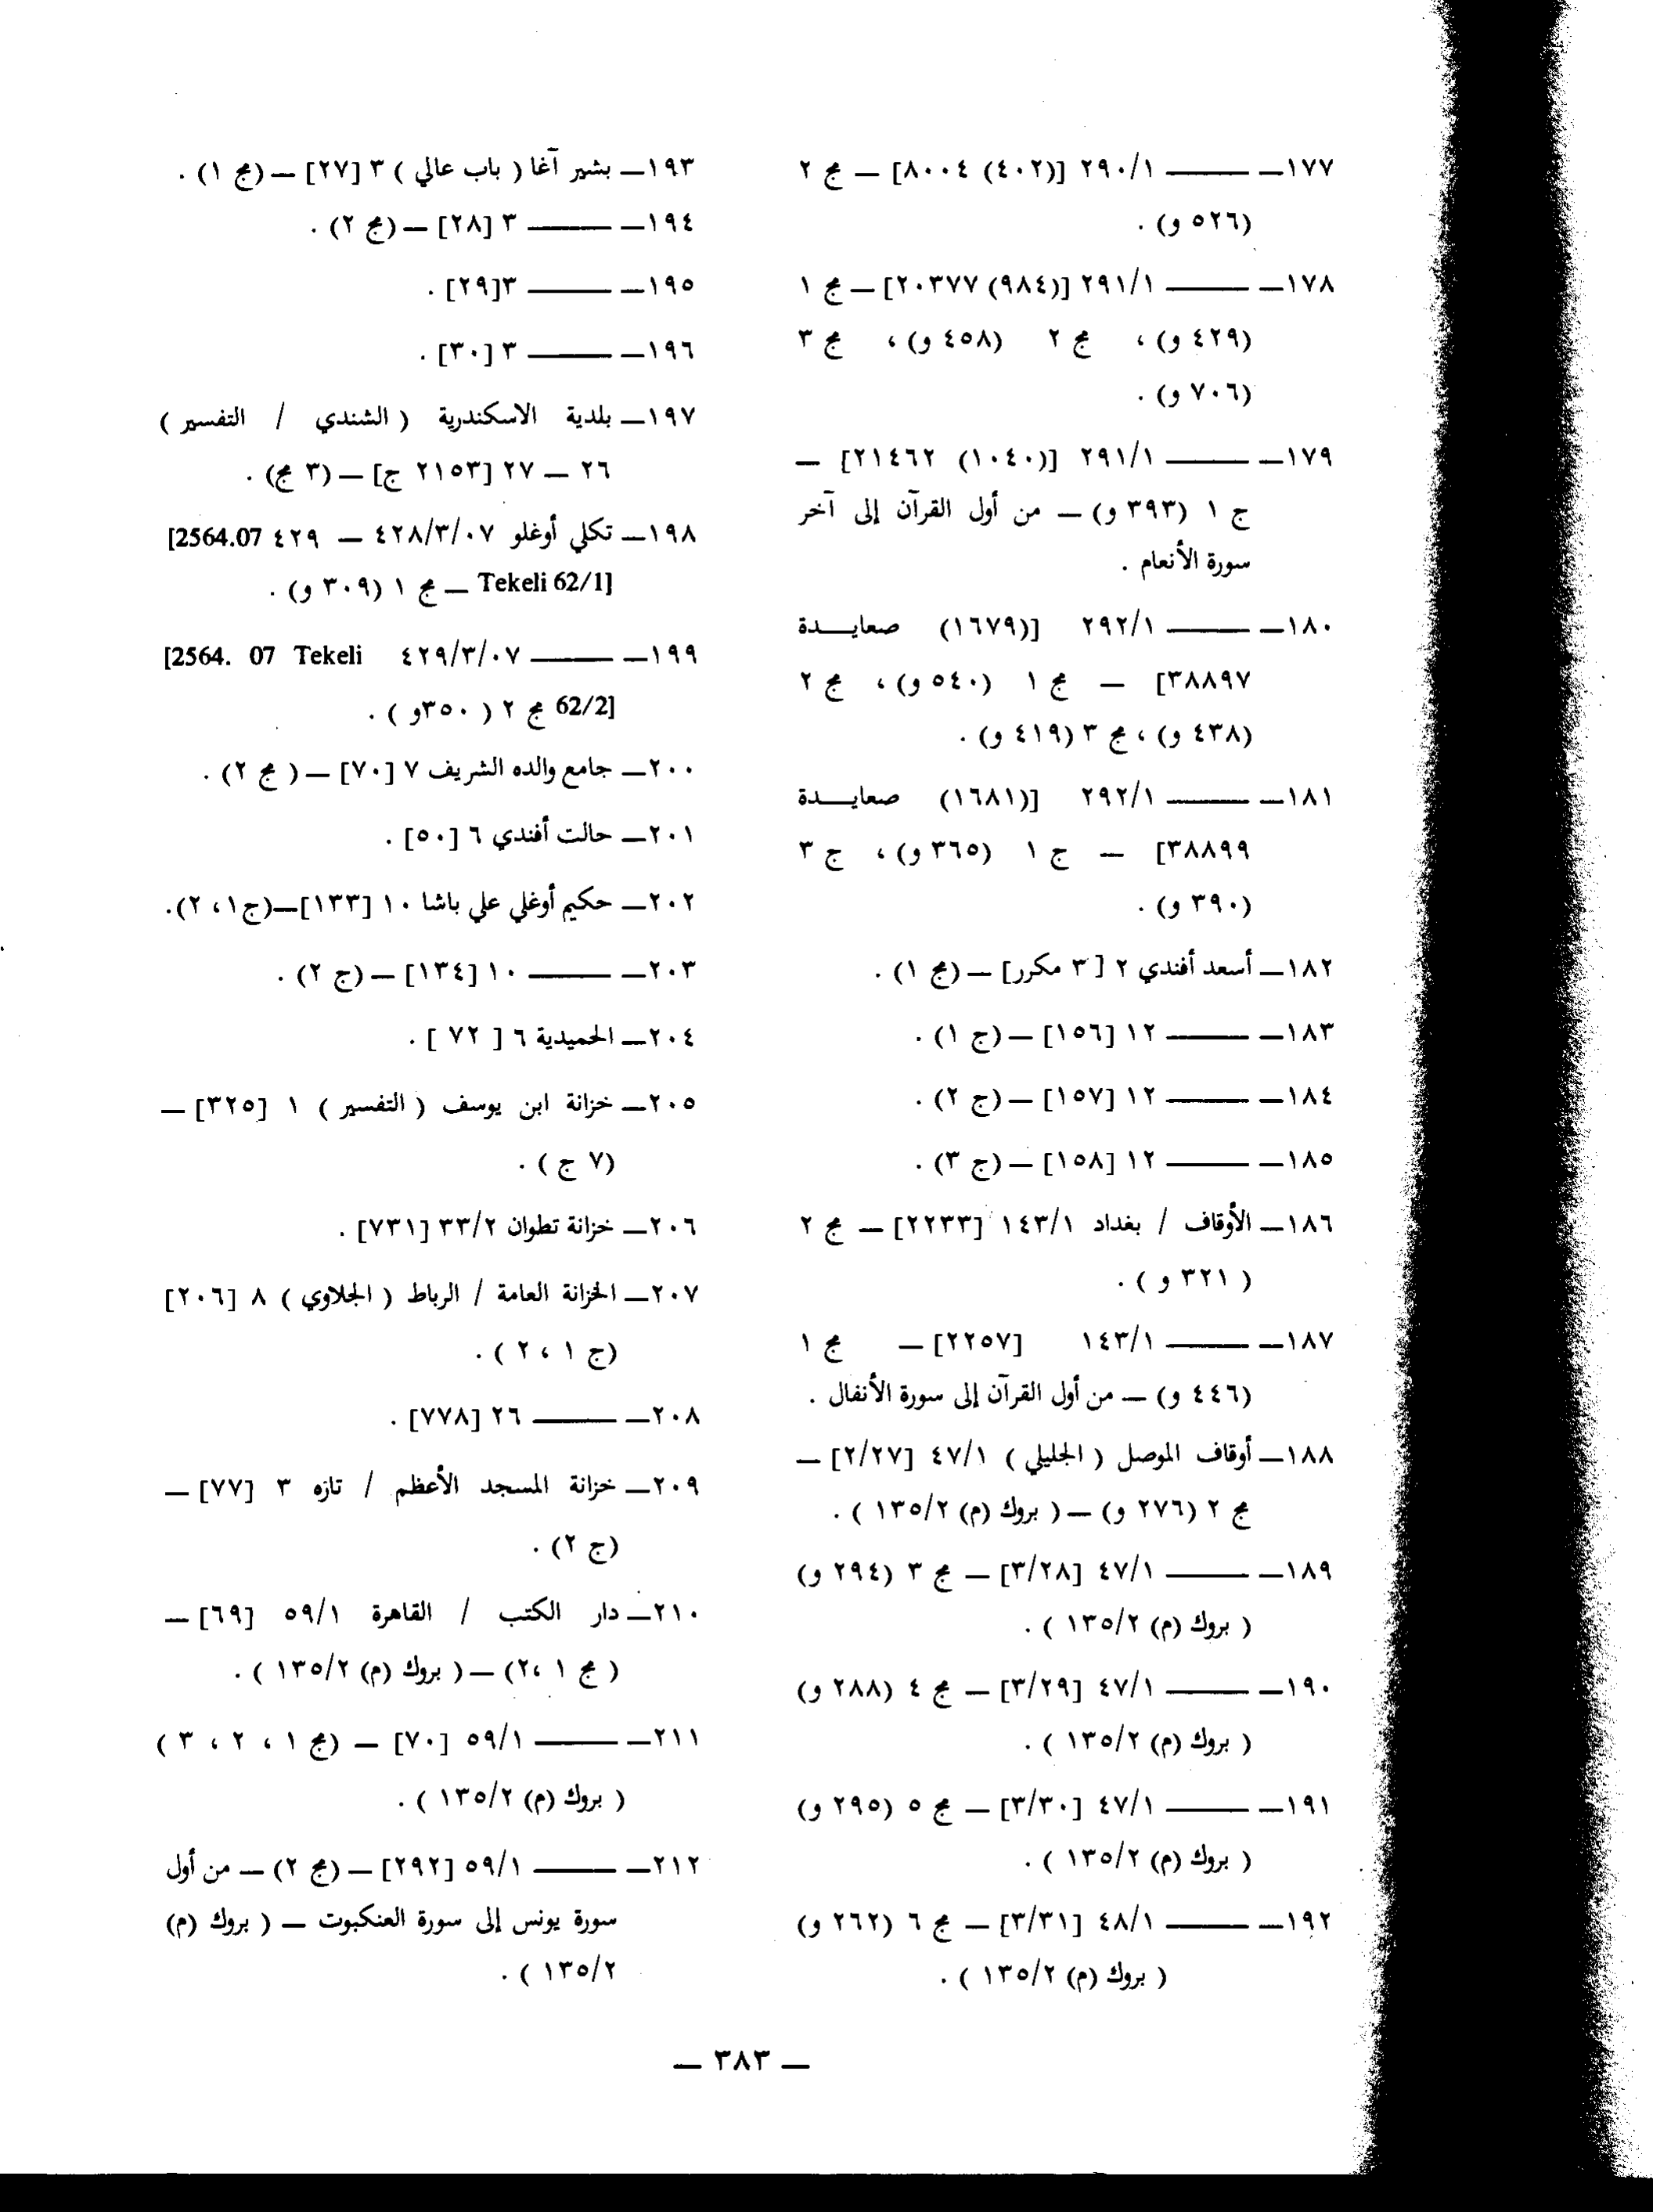 ١٧٧ــ ـــــــ ٢٩٠/١ [(٤٠٢) ٨٠٠٤] ــ مج ٢
(٥٢٦ و) .
١٧٨ــ ـــــــ ٢٩١/١ [(٩٨٤) ٢٠٣٧٧] ــ مج ١
(٤٢٩ و) ، مج ٢ (٤٥٨ و) ، مج ٣
(٧٠٦ و) .
١٧٩ــ ـــــــ ٢٩١/١ [(١٠٤٠) ٢١٤٦٢] ــ
ج ١ (٣٩٣ و) ــ من أول القرآن إلى آخر
سورة الأنعام .
١٨٠ــ ـــــــ ٢٩٢/١ [(١٦٧٩) صعايـــدة
٣٨٨٩٧] ــ مج ١ (٥٤٠ و) ، مج ٢
(٤٣٨ و) ، مج ٣ (٤١٩ و) .
١٨١ــ ـــــــ ٢٩٢/١ [(١٦٨١) صعايـــدة
٣٨٨٩٩] ــ ج ١ (٣٦٥ و) ، ج ٣
(٣٩٠ و) .
١٨٢ــ أسعد أفندي ٢ [ ٣ مكرر] ــ (مج ١) .
١٨٣ــ ـــــــ ١٢ [١٥٦] ــ (ج ١) .
١٨٤ــ ـــــــ ١٢ [١٥٧] ــ (ج ٢) .
١٨٥ــ ـــــــ ١٢ [١٥٨] ــ (ج ٣) .
١٨٦ــ الأوقاف / بغداد ١٤٣/١ [٢٢٣٣] ــ مج ٢
( ٣٢١ و ) .
١٨٧ــ ـــــــ ١٤٣/١ [٢٢٥٧] ــ مج ١
(٤٤٦ و) ــ من أول القرآن إلى سورة الأنفال .
١٨٨ــ أوقاف الموصل ( الجليلي ) ٤٧/١ [٢/٢٧] ــ
مج ٢ (٢٧٦ و) ــ ( بروك (م) ١٣٥/٢ ) .
١٨٩ــ ـــــــ ٤٧/١ [٣/٢٨] ــ مج ٣ (٢٩٤ و)
( بروك (م) ١٣٥/٢ ) .
١٩٠ــ ـــــــ ٤٧/١ [٣/٢٩] ــ مج ٤ (٢٨٨ و)
( بروك (م) ١٣٥/٢ ) .
١٩١ــ ـــــــ ٤٧/١ [٣/٣٠] ــ مج ٥ (٢٩٥ و)
( بروك (م) ١٣٥/٢ ) .
١٩٢ــ ـــــــ ٤٨/١ [٣/٣١] ــ مج ٦ (٢٦٢ و)
( بروك (م) ١٣٥/٢ ) .
١٩٣ــ بشير آغا ( باب عالي ) ٣ [٢٧] ــ (مج ١) .
١٩٤ــ ـــــــ ٣ [٢٨] ــ (مج ٢) .
١٩٥ــ ـــــــ ٣[٢٩] .
١٩٦ــ ـــــــ ٣ [٣٠] .
١٩٧ــ بلدية الاسكندرية ( الشندي / التفسير )
٢٦ ــ ٢٧ [٢١٥٣ ج] ــ (٣ مج) .
١٩٨ــ تكلي أوغلو ٤٢٨/٣/٠٧ ــ ٤٢٩ [2564.07
Tekeli 62/1] ــ مج ١ (٣٠٩ و) .
١٩٩ــ ـــــــ ٤٢٩/٣/٠٧ [2564. 07 Tekeli
62/2] مج ٢ ( ٣٥٠و ) .
٢٠٠ــ جامع والده الشريف ٧ [٧٠] ــ ( مج ٢) .
٢٠١ــ حالت أفندي ٦ [٥٠] .
٢٠٢ــ حكيم أوغلي علي باشا ١٠ [١٣٣]ــ(ج١، ٢).
٢٠٣ــ ـــــــ ١٠ [١٣٤] ــ (ج ٢) .
٢٠٤ــ الحميدية ٦ [ ٧٢ ] .
٢٠٥ــ خزانة ابن يوسف ( التفسير ) ١ [٣٢٥] ــ
(٧ ج ) .
٢٠٦ــ خزانة تطوان ٣٣/٢ [٧٣١] .
٢٠٧ــ الخزانة العامة / الرباط ( الجلاوي ) ٨ [٢٠٦]
(ج ١ ، ٢ ) .
٢٠٨ــ ـــــــ ٢٦ [٧٧٨] .
٢٠٩ــ خزانة المسجد الأعظم / تازه ٣ [٧٧] ــ
(ج ٢) .
٢١٠ــ دار الكتب / القاهرة ٥٩/١ [٦٩] ــ
( مج ١ ،٢) ــ ( بروك (م) ١٣٥/٢ ) .
٢١١ــ ـــــــ ٥٩/١ [٧٠] ــ (مج ١ ، ٢ ، ٣ )
( بروك (م) ١٣٥/٢ ) .
٢١٢ــ ـــــــ ٥٩/١ [٢٩٢] ــ (مج ٢) ــ من أول
سورة يونس إلى سورة العنكبوت ــ ( بروك (م)
١٣٥/٢ ) .
ــ ٣٨٣ ــ